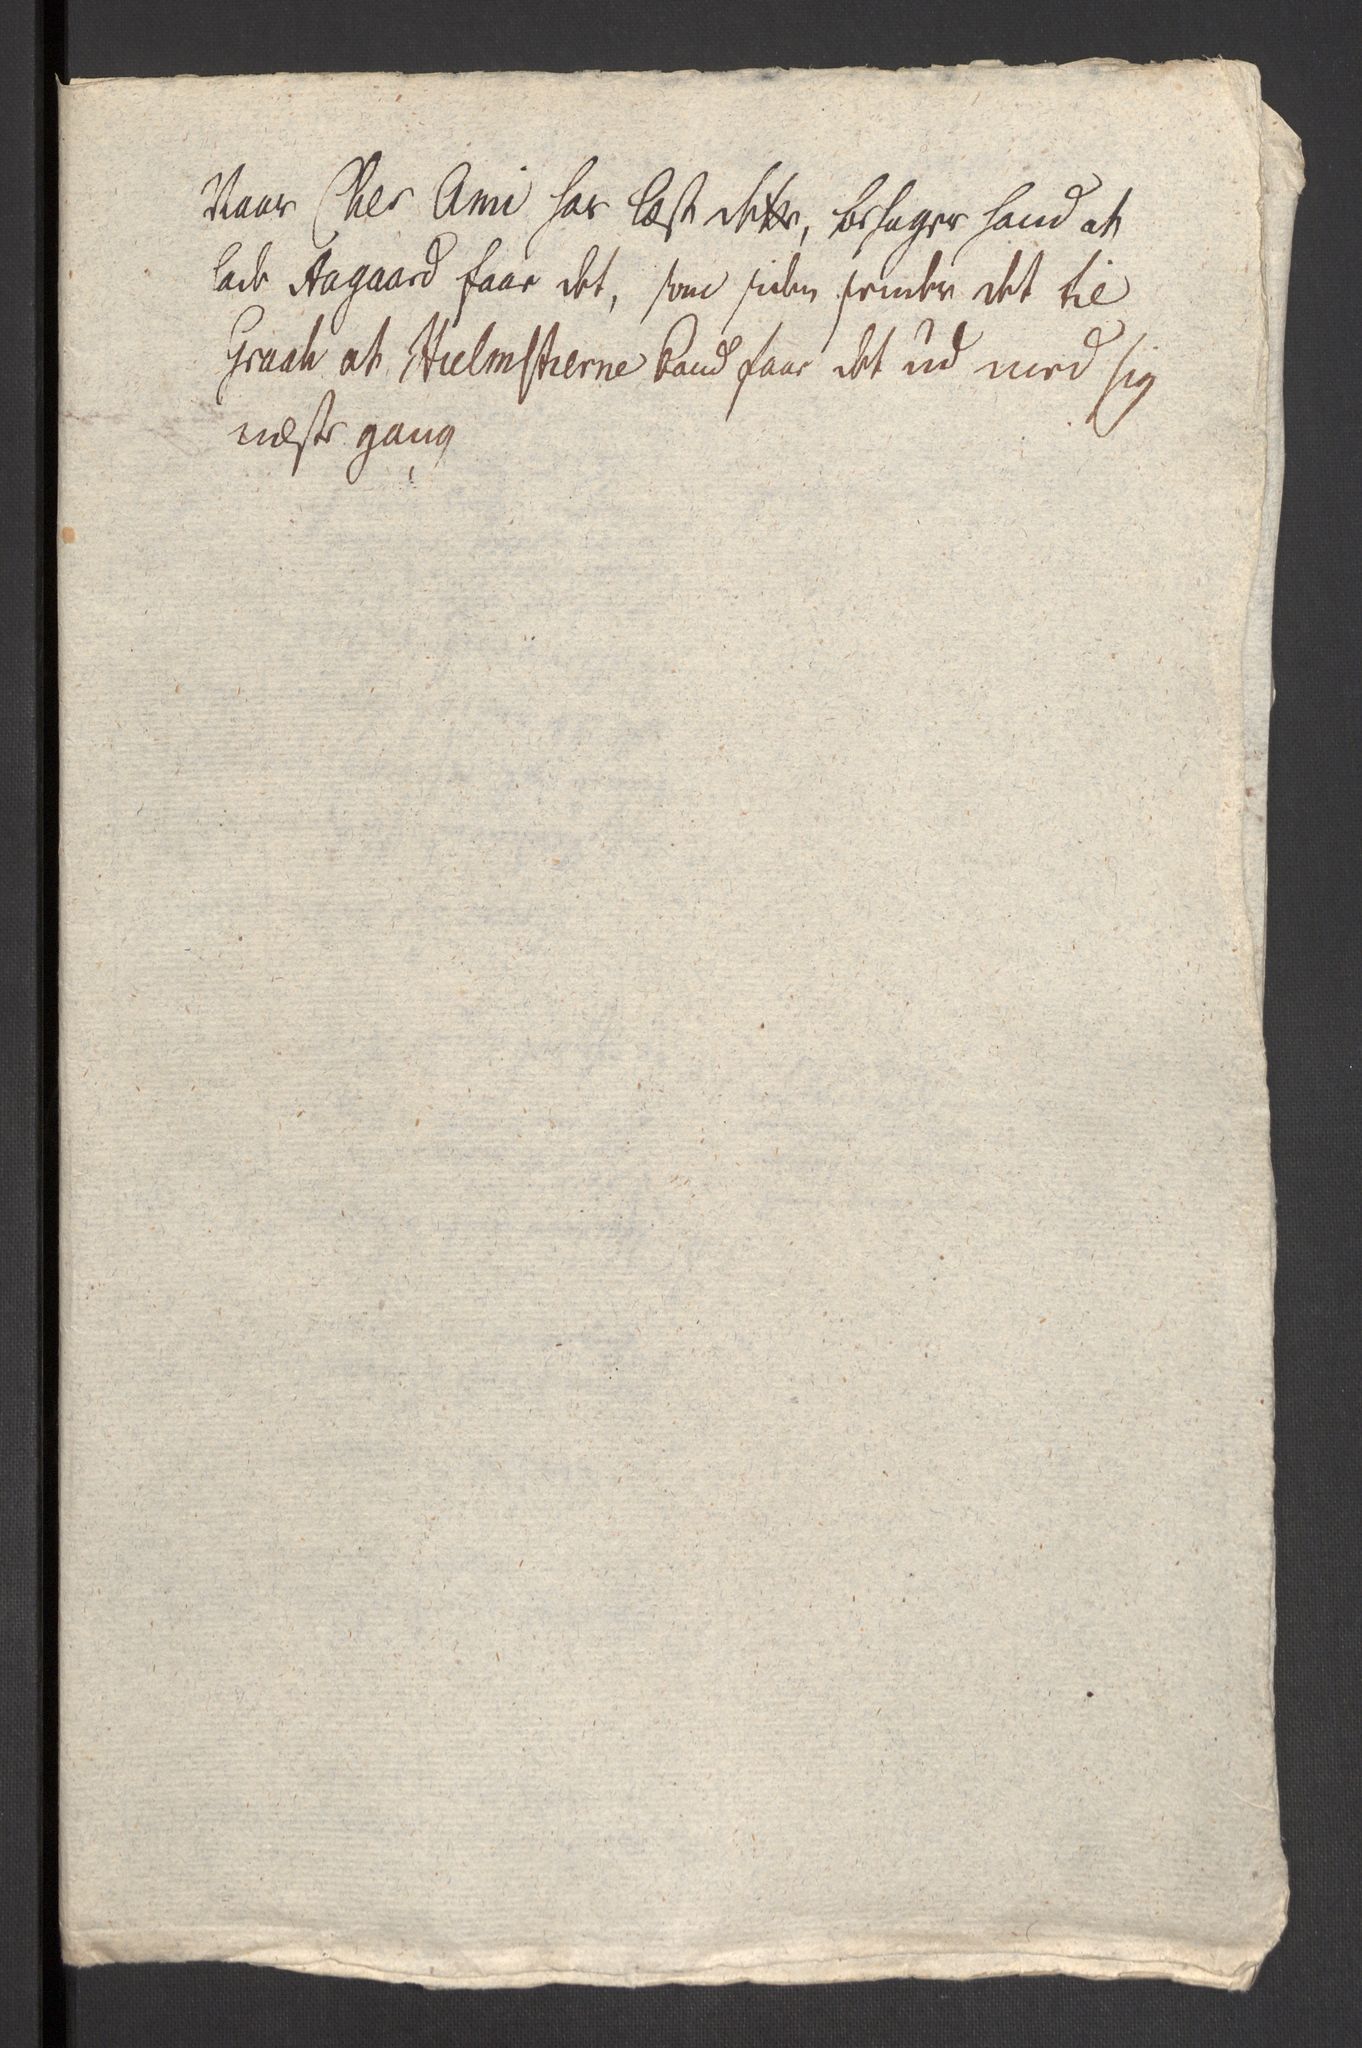 Naar Cher Ami har læst dette, behager hand at
lade Aagaard faae det, som siden sender det til
Graah at Hielmstierne kand faae det ud med sig
næste gang